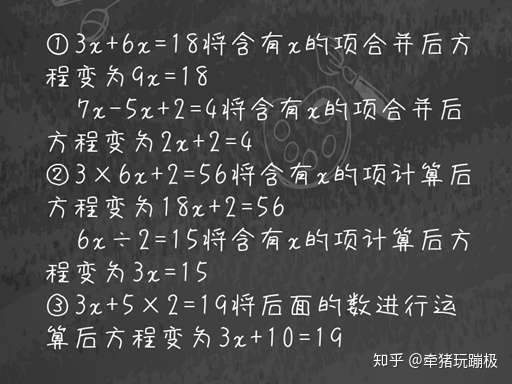 ①3x+6x=18将含有x的项合并后方
程变为9x=18
7x-5x+2=4将含有x的项合并后
方程变为2x+2=4
②3×6x+2=56将含有x的项计算后
方程变为18x+2=56
6x÷2=15将含有x的项计算后方
程变为3x=15
③3x+5×2=19将后面的数进行运
算后方程变为3x+10=19
知乎 @牵猪玩蹦极